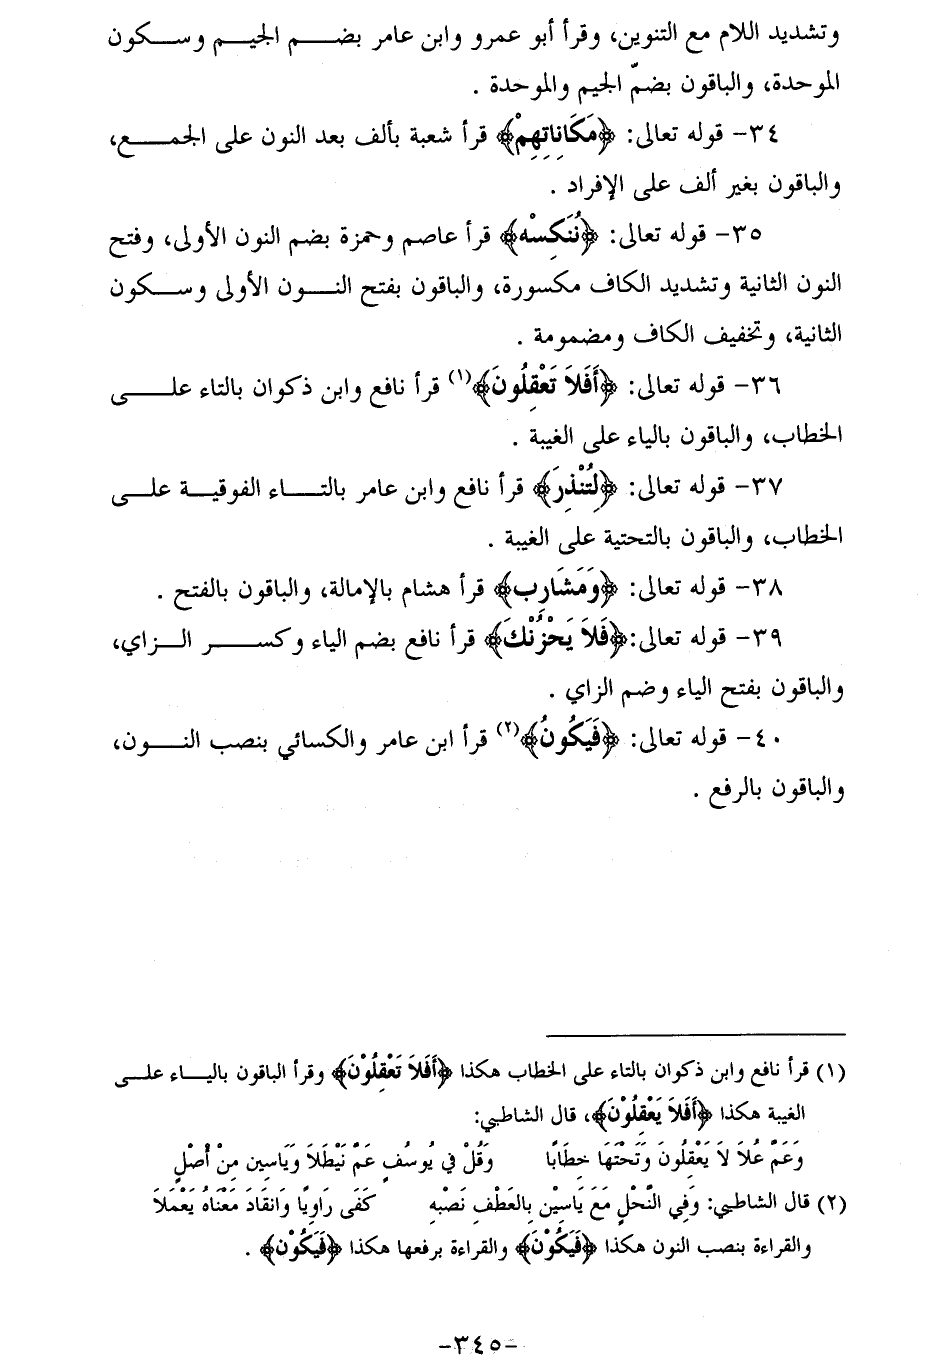 وتشديد اللام مع التنوين، وقرأ أبو عمرو وابن عامر بضم الجيم وسكون
الموحدة، والباقون بضمّ الجيم والموحدة .
٣٤- قوله تعالى: ﴿مَكَانَاتِهِمْ﴾ قرأ شعبة بألف بعد النون على الجمع،
والباقون بغير ألف على الإفراد .
٣٥- قوله تعالى: ﴿نُنَكِسْه﴾ قرأ عاصم وحمزة بضم النون الأولى، وفتح
النون الثانية وتشديد الكاف مكسورة، والباقون بفتح النون الأولى وسكون
الثانية، وتخفيف الكاف ومضمومة .
٣٦- قوله تعالى: ﴿أَفَلاَ تَعْقِلُونَ﴾(١) قرأ نافع وابن ذكوان بالتاء على
الخطاب، والباقون بالياء على الغيبة .
٣٧- قوله تعالى: ﴿لِتُنْذِرَ﴾ قرأ نافع وابن عامر بالتاء الفوقية على
الخطاب، والباقون بالتحتية على الغيبة .
٣٨- قوله تعالى: ﴿وَمَشَارِب﴾ قرأ هشام بالإمالة، والباقون بالفتح .
٣٩- قوله تعالى: ﴿فَلاَ يَحْزُنْكَ﴾ قرأ نافع بضم الياء وكسر الزاي،
والباقون بفتح الياء وضم الزاي .
٤٠- قوله تعالى: ﴿فَيَكُونُ﴾(٢) قرأ ابن عامر والكسائي بنصب النون،
والباقون بالرفع .
(١) قرأ نافع وابن ذكوان بالتاء على الخطاب هكذا ﴿أَفَلاَ تَعْقِلُوْنَ﴾ وقرأ الباقون بالياء على
الغيبة هكذا ﴿أَفَلاَ يَعْقِلُوْنَ﴾، قال الشاطبي:
وَعَمَّ عُلاَ لاَ يَعْقِلُونَ وَتَحْتَهَا خِطَابًا وَقُلْ في يُوسُفٍ عَمَّ نَيْطَلاَ وَيَاسِين مِنْ أَصْلٍ
(٢) قال الشاطبي: وَفي النَّحْلِ مَعَ يَاسِيْن بِالعَطْفِ نَصْبُهِ كَفَى رَاوِيًا وَانقَادَ مَعْنَاهُ يَعْمَلاَ
والقراءة بنصب النون هكذا ﴿فَيَكُوْنَ﴾ والقراءة برفعها هكذا ﴿فَيَكُوْن﴾ .
-٣٤٥-